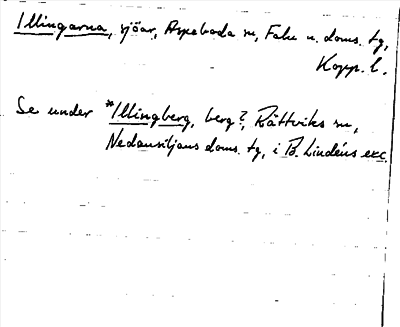 Illingarna, sjöar, Aspeboda sn, Falu n. doms. tg,
Kopp. l.
Se under *Illingberg, berg?, Rättviks sn,
Nedansiljans doms. tg, i B. Lindéns exc.